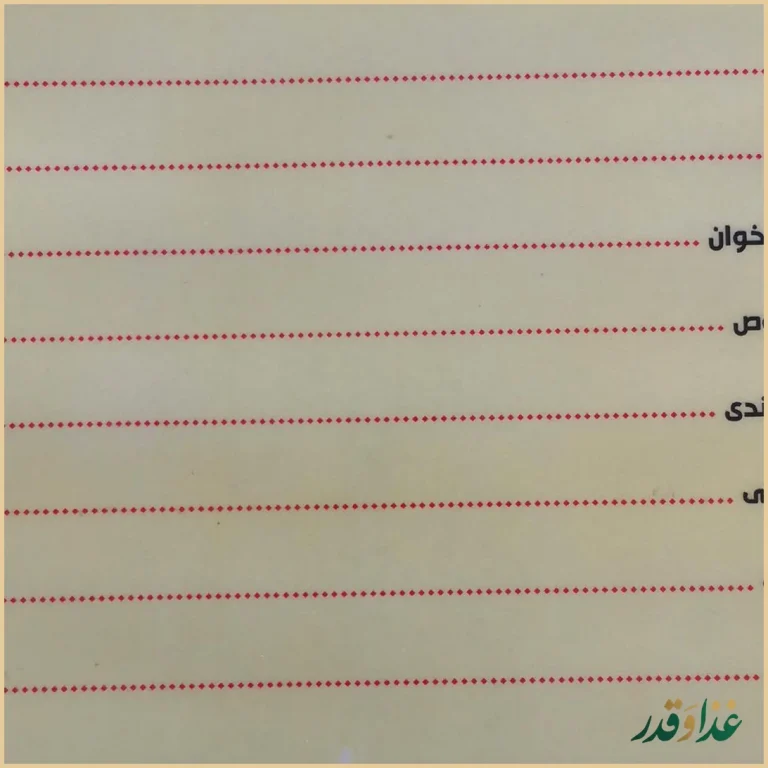 خوان
وص
ندی
ی
غذا وَ قدر